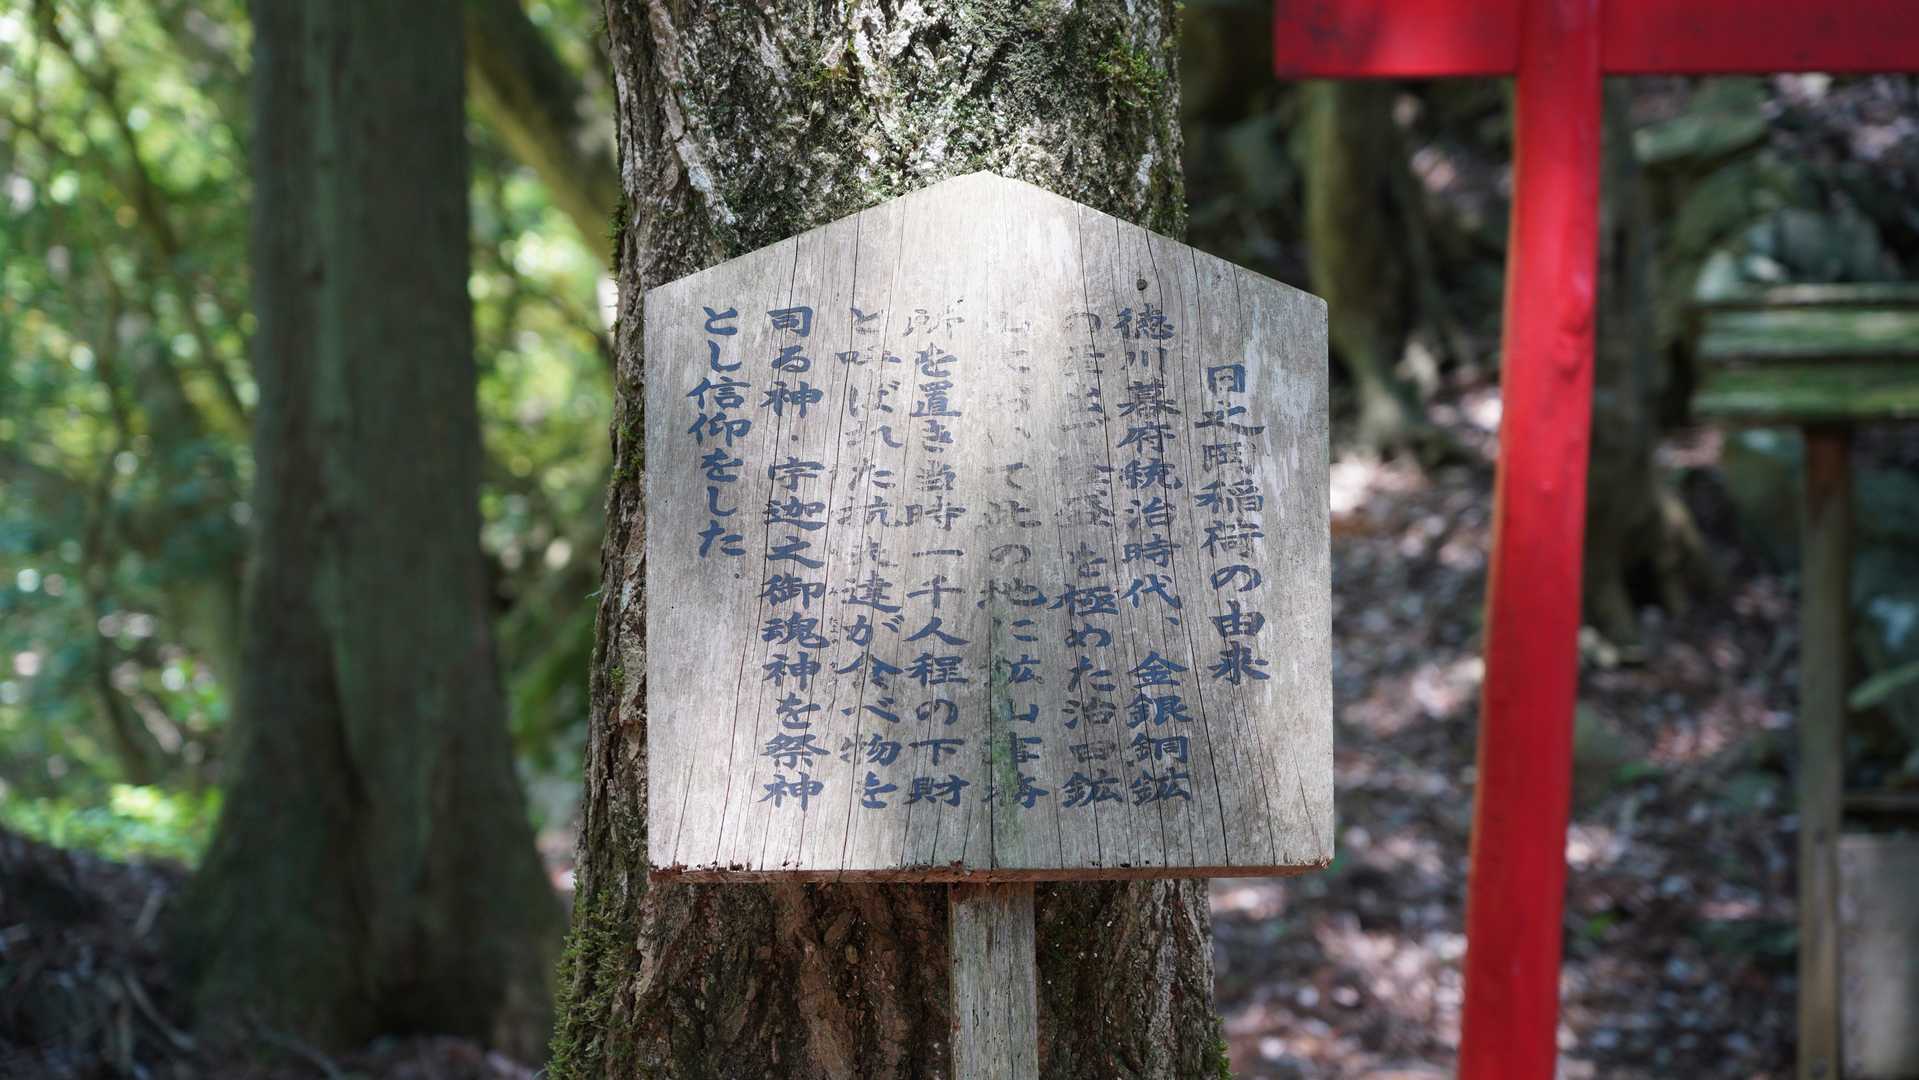 日之岡稲荷の由来
徳川幕府統治時代、金銀銅鉱
の全盛を極めた治田鉱
山において此の地に鉱山事務
所を置き当時一千人程の下財
と呼ばれた坑夫達が食べ物を
司る神・宇迦之御魂神を祭神
とし信仰をした。